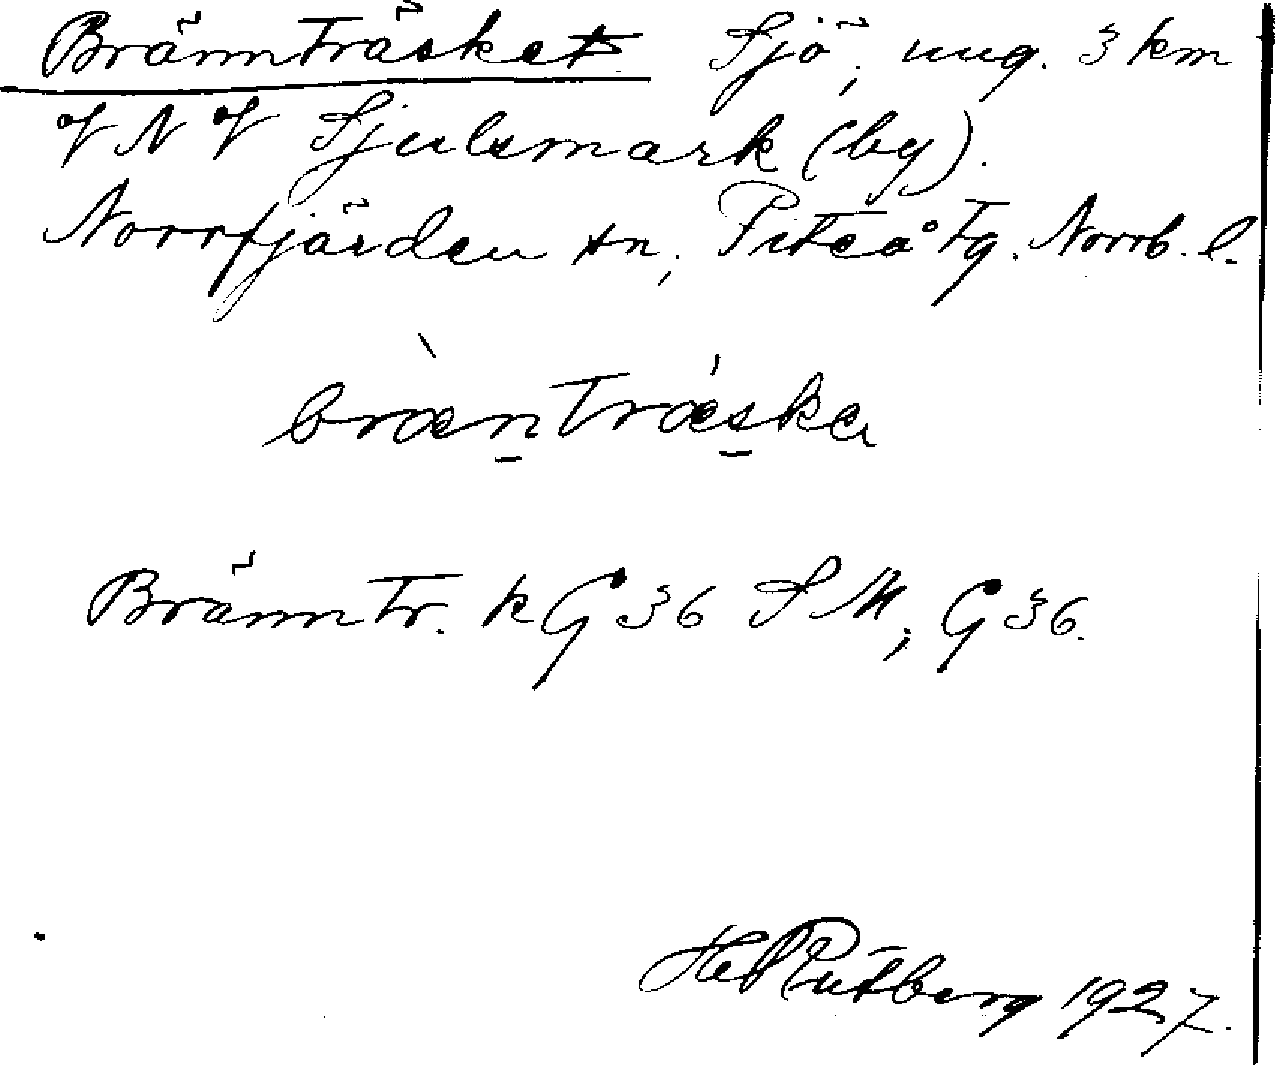 Brännträsket Sjö, ung. 3 km
V N V Sjulsmark (by).
Norrfjärden sn, Piteå tg. Norrb. l.
bræ̀nntrǽska
Bränntr. k G 36 S M, G 36.
Hel Rutberg 1927.